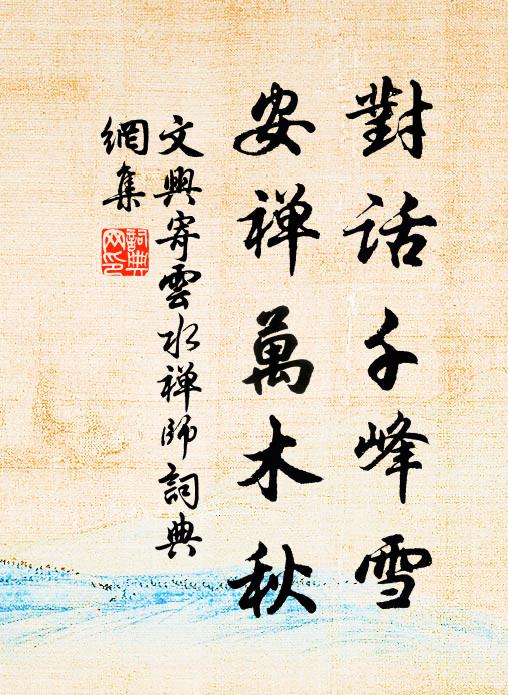 對話千峰雪
安禅萬木秋
文興寄雲水禅師詞典
網集
詞典
网印